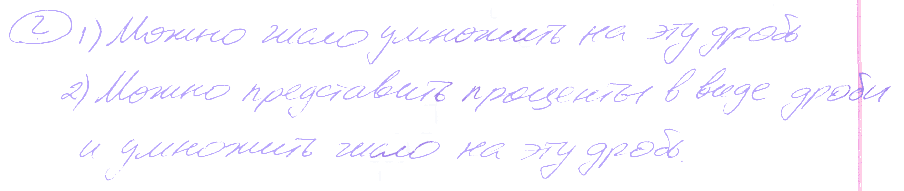 2 1) Можно число умножить на эту дробь
2) Можно представить проценты в виде дроби
и умножить число на эту дробь.